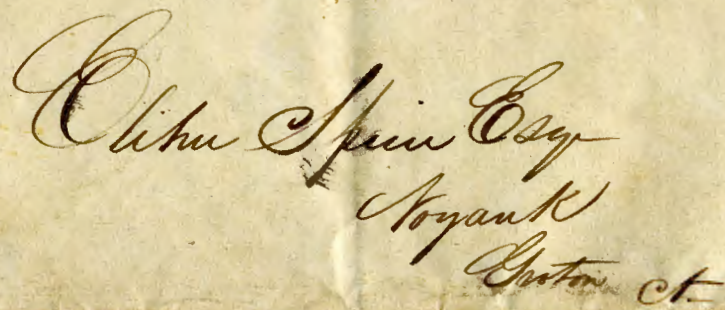 Elihu Spicer Esqr
Noyank
Groton Ct.